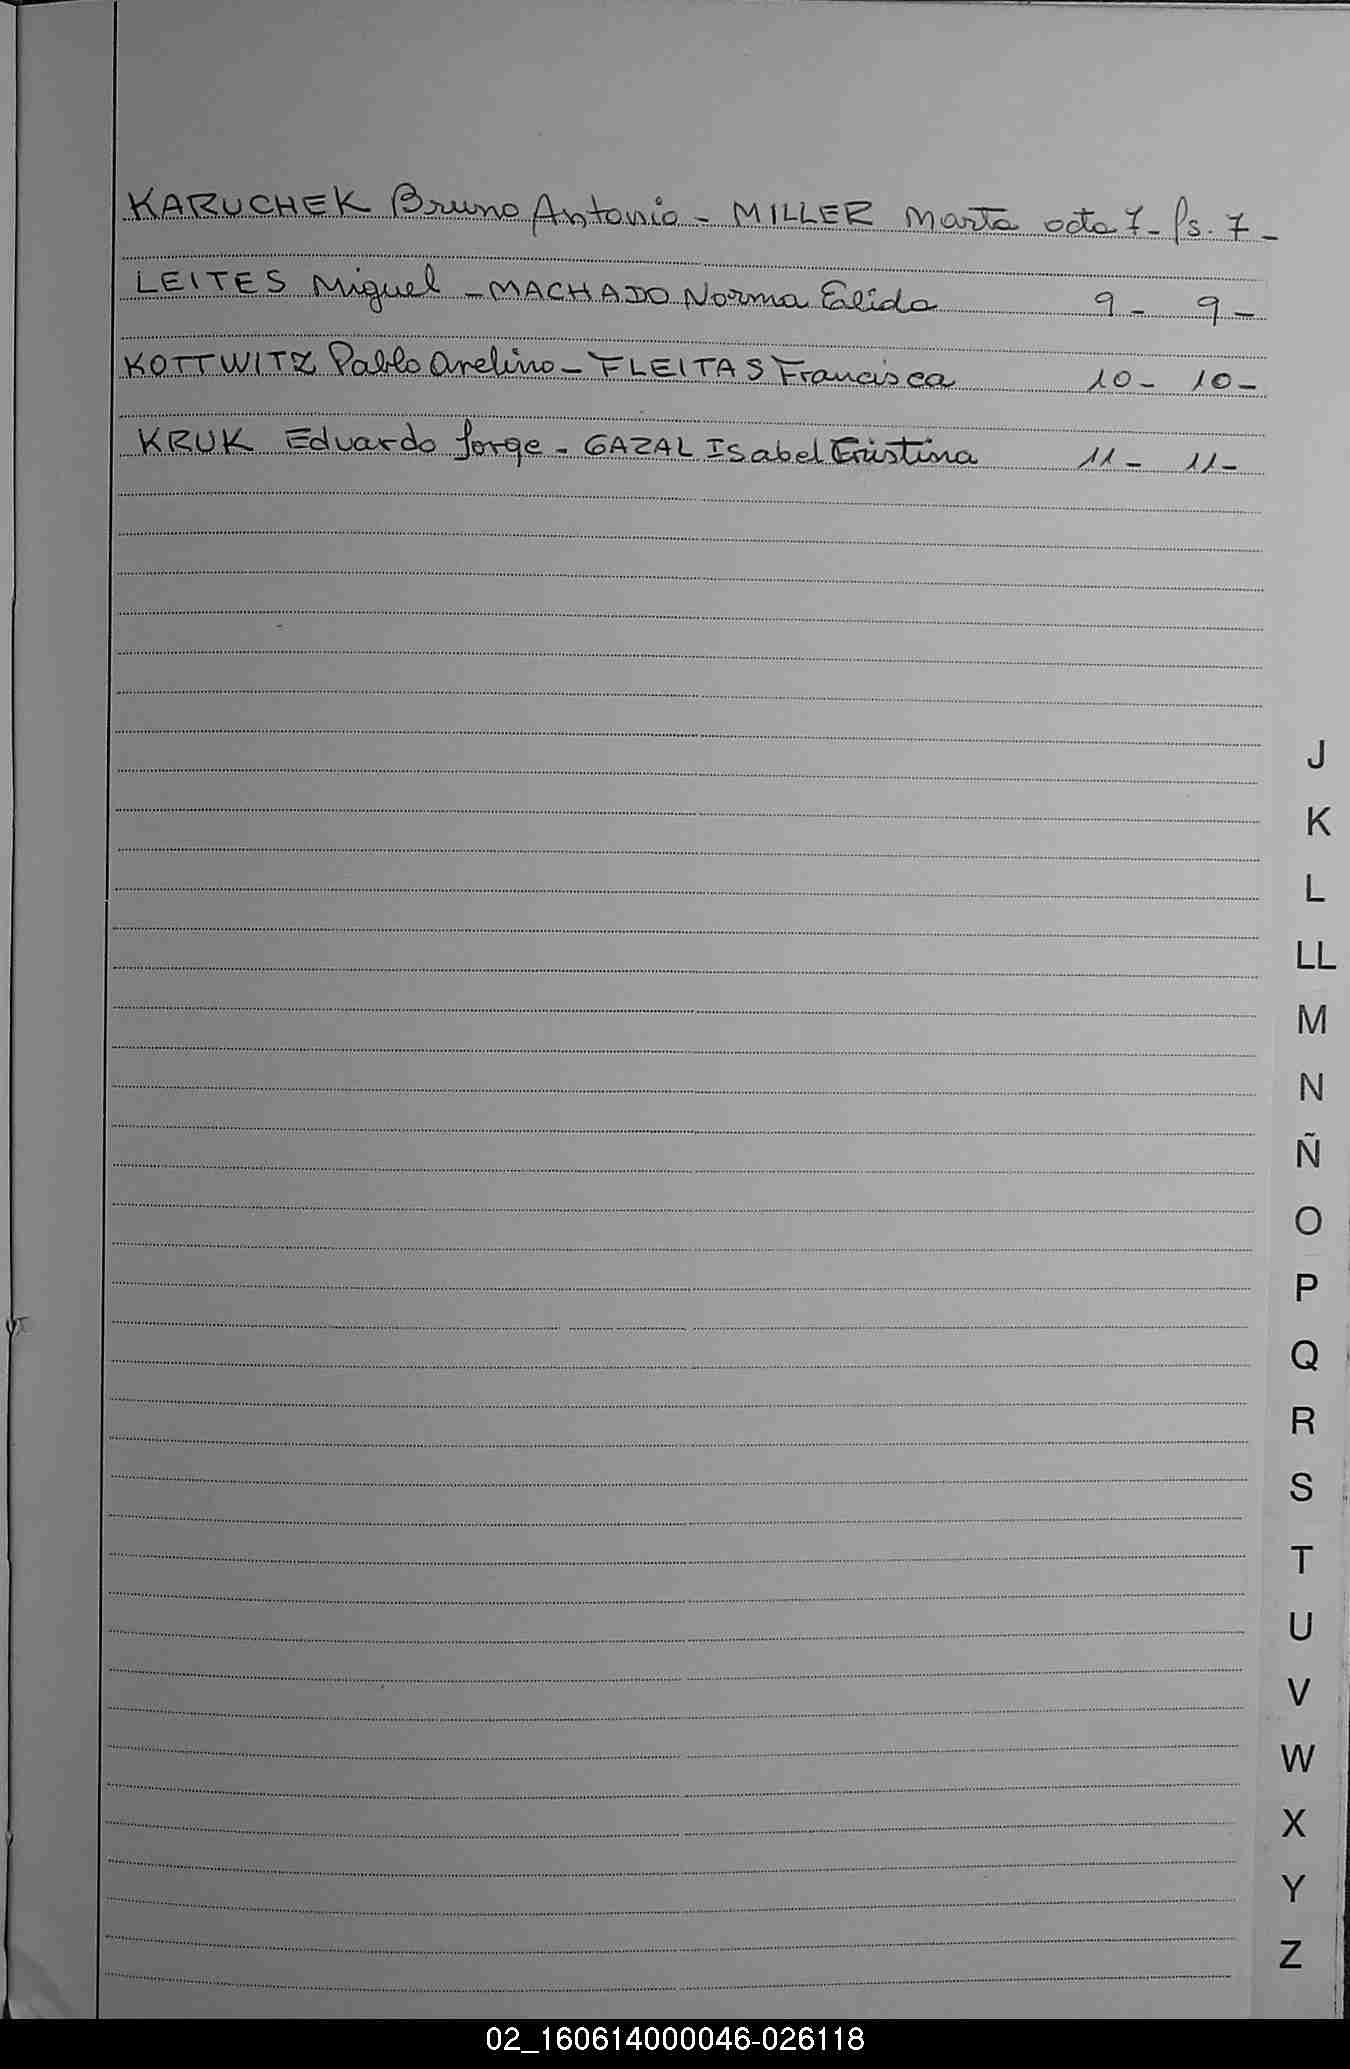 KARUCHEK Bruno Antonio - MILLER Marta acta 7- fs. 7-
LEITES Miguel - MACHADO Norma Elida 9- 9-
KOTTWITZ Pablo Avelino - FLEITAS Francisca 10- 10-
KRUK Eduardo Jorge - GAZAL Isabel Cristina 11- 11-
J
K
L
LL
M
N
Ñ
O
P
Q
R
S
T
U
V
W
X
Y
Z
02_160614000046-026118